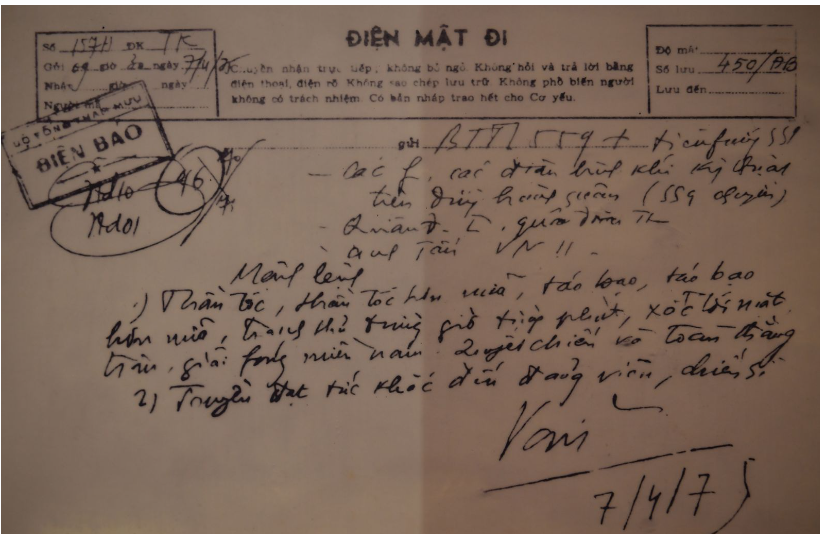 ĐIỆN MẬT ĐI
Số 157H ĐK TK
Gởi giờ ngày 7/4/75
Nhận giờ ngày
Người mã
Chuyền nhận trực tiếp, không bỏ ngỏ. Không hỏi và trả lời bằng
điện thoại, điện rõ. Không sao chép lưu trữ. Không phổ biến người
không có trách nhiệm. Có bản nháp trao hết cho Cơ yếu.
Độ mật
Số lưu 450/ĐB
Lưu đến
BỘ TỔNG THAM MƯU
ĐIỆN BÁO
46
gửi BTTL 559 +
- các f, các
tiến (559 chuyển)
- Quân đ. I, quân đoàn
Mệnh lệnh
1) Thần tốc, thần tốc hơn nữa, táo bạo, táo bạo
hơn nữa, tranh thủ từng giờ từng phút, xốc tới mặt
trận, giải fóng miền nam. Quyết chiến và toàn thắng
2) Truyền đạt tức khắc đến đảng viên, chiến sĩ
Văn
7/4/75